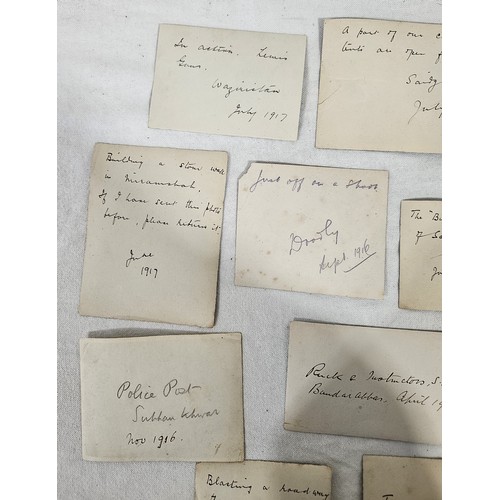 In action. Lewis
Guns.
Waziristan
July 1917
A part of our c
tents are open f
Saidg
July
Building a stone wall
in Miramshah.
If I have sent this photo
before, please return it
June
1917
Just off on a shoot
Sept 1916
The "B
of Sa
Ju
Police Post
Subhan Khwar
Nov 1916.
9
Ruck & Instructors, S.
Bandar Abbas, April 19
Blasting a road way